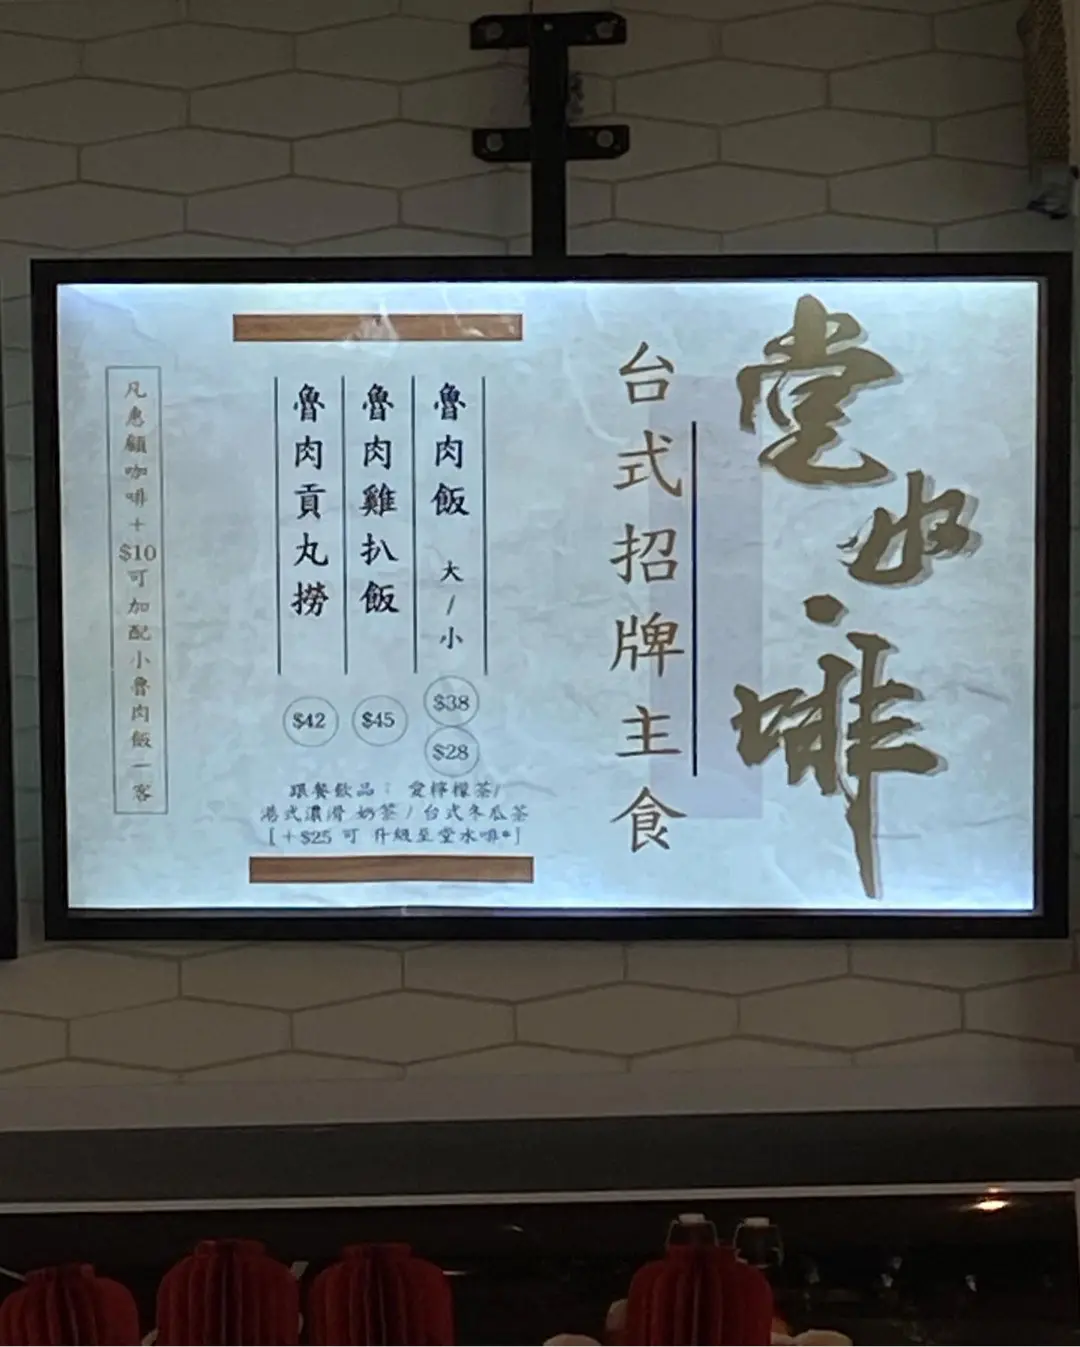 堂水啡
台式招牌主食
魯肉飯 大/小
$38
$28
魯肉雞扒飯
$45
魯肉貢丸撈
$42
跟餐飲品： 愛檸檬茶/
港式濃滑奶茶 / 台式冬瓜茶
[ +$25 可 升級至堂水啡* ]
凡惠顧咖啡+$10可加配小魯肉飯一客